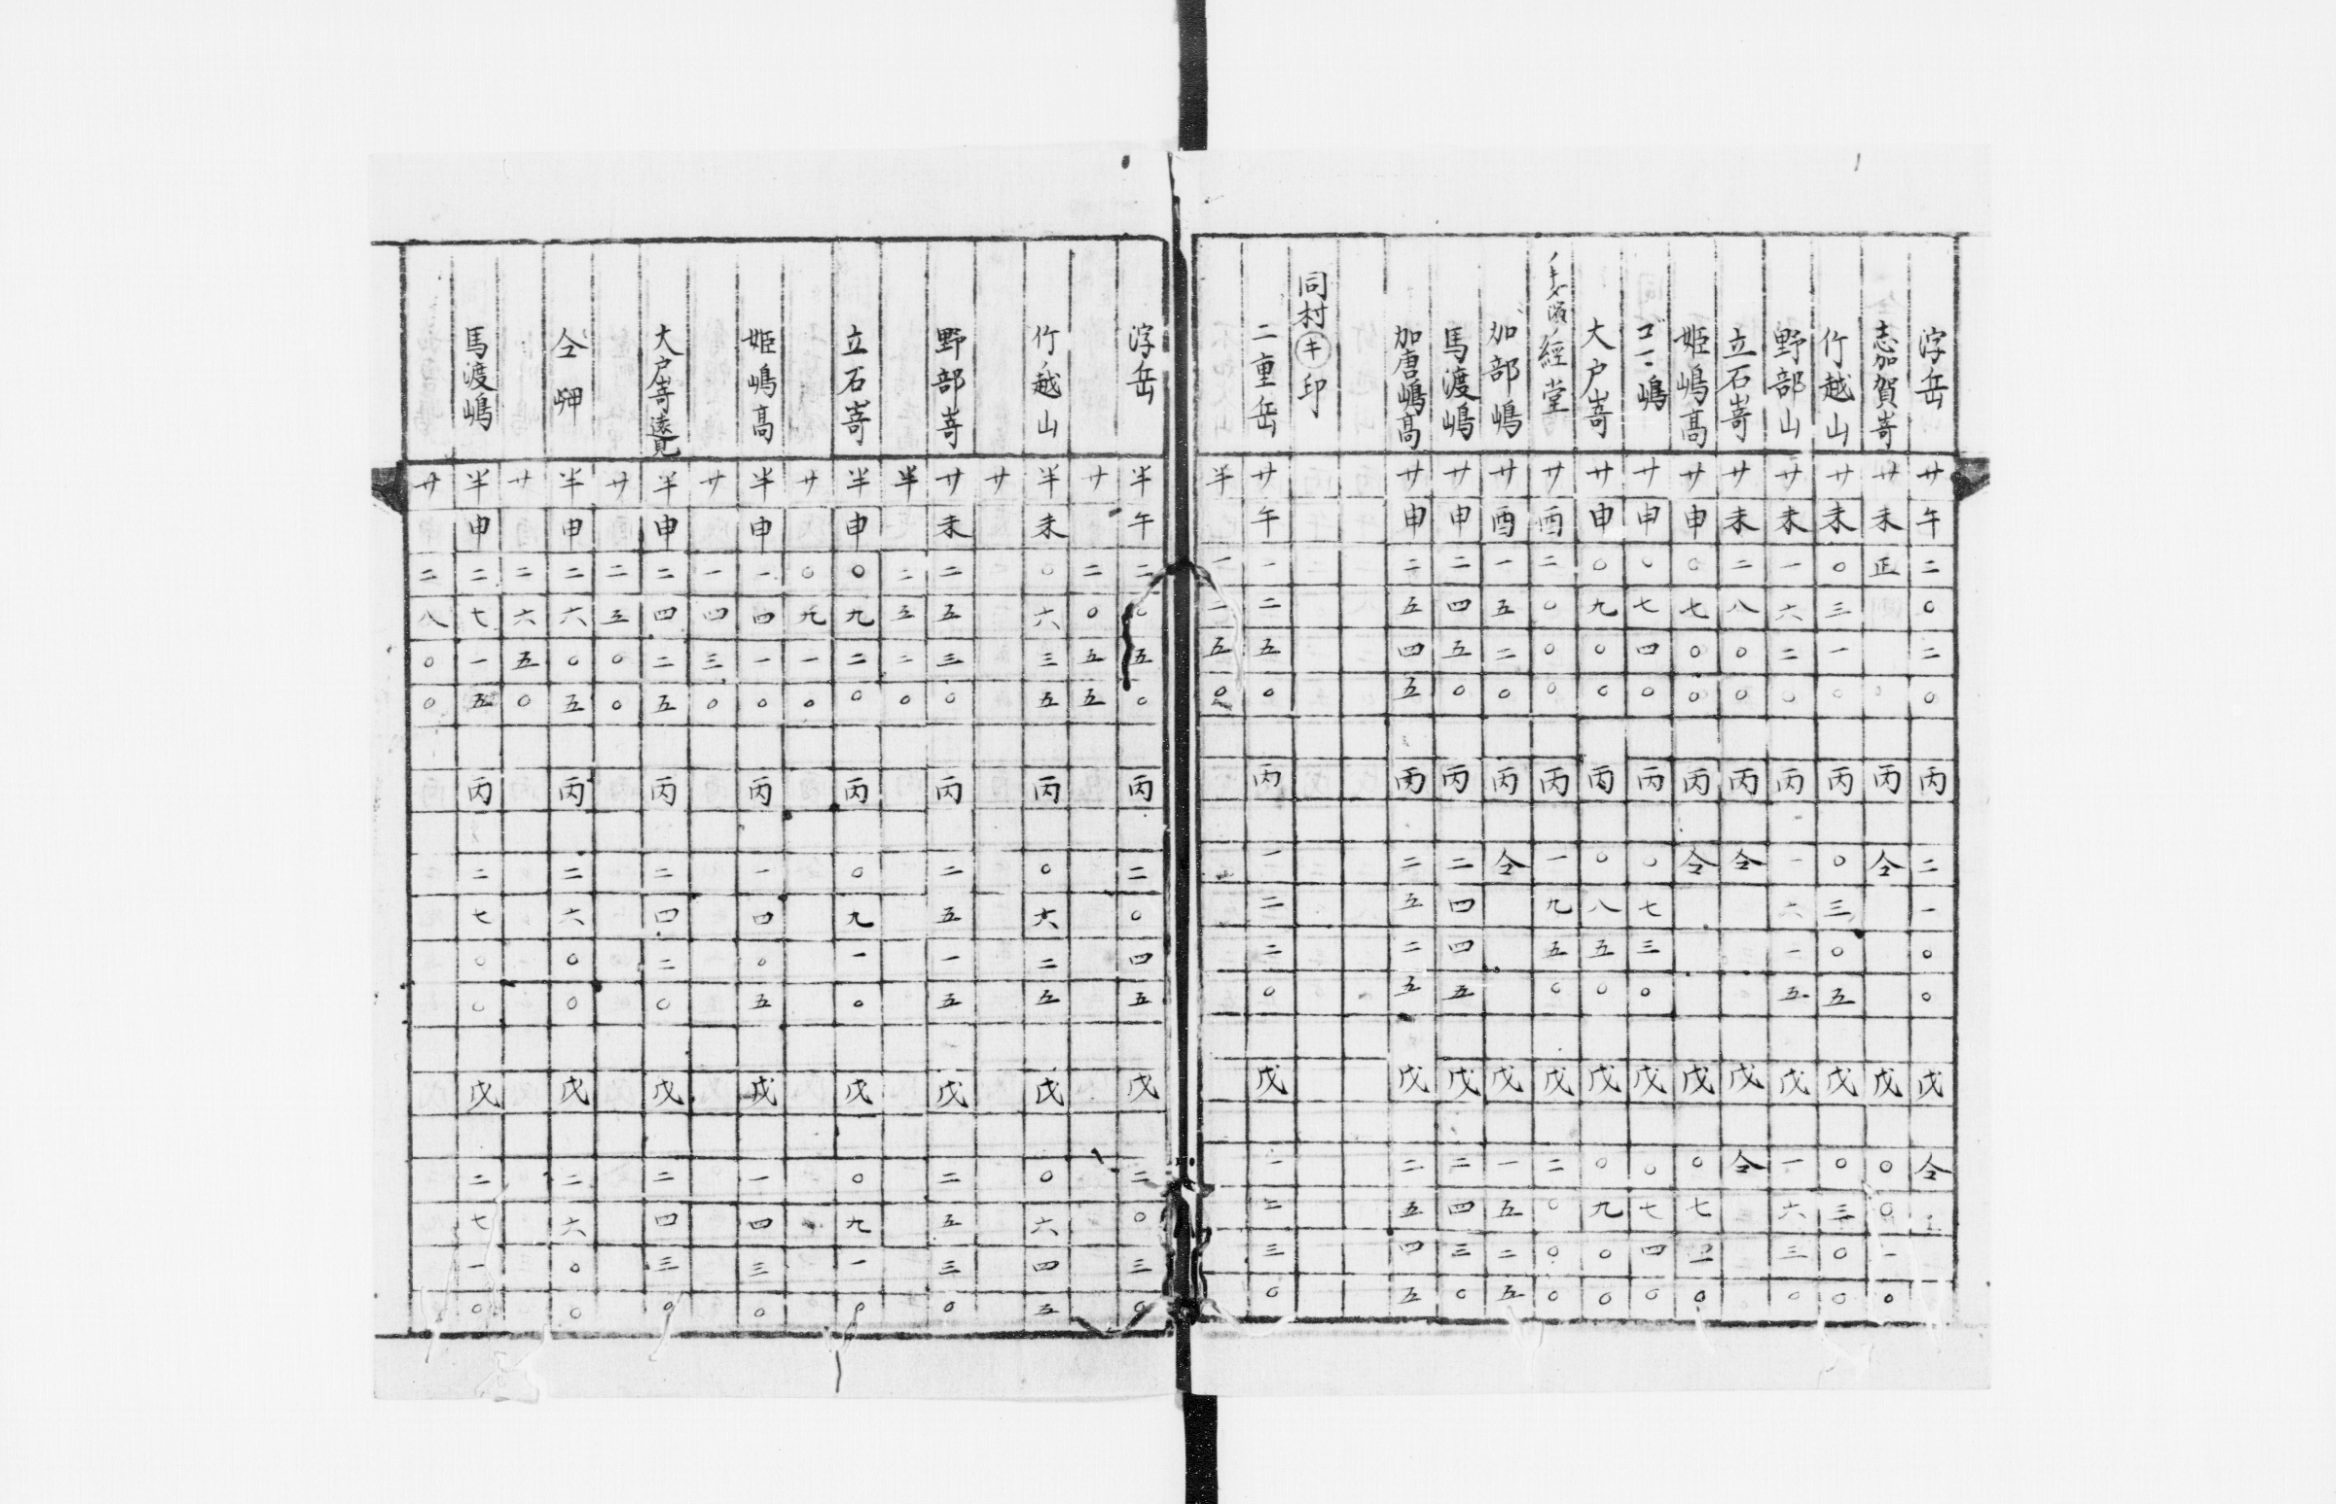 浮岳 廿午二〇二〇 丙 二一〇〇 戊 仝
志加賀嵜 廿未正 丙 仝 戊 〇〇一〇
竹越山 廿未〇三一〇 丙 〇三〇五 戊 〇三〇〇
野部山 廿未一六二〇 丙 一六一五 戊 一六三〇
立石嵜 廿未二八〇〇 丙 仝 戊 仝
姫嶋高 廿申〇七〇〇 丙 仝 戊 〇七二〇
嶋 廿申〇七四〇 丙 〇七三〇 戊 〇七四〇
大戸嵜 廿申〇九〇〇 丙 〇八五〇 戊 〇九〇〇
濱ノ經堂 廿酉二〇〇〇 丙 一九五〇 戊 二〇〇〇
加部嶋 廿酉一五二〇 丙 仝 戊 一五二五
馬渡嶋 廿申二四五〇 丙 二四四五 戊 二四三〇
加唐嶋高 廿申二五四五 丙 二五二五 戊 二五四五
同村㋖印
二重岳 廿午一二五〇 丙 一二二〇 戊 一二三〇
半 一二五〇
浮岳 半午二〇五〇 丙 二〇四五 戊 二〇三〇
廿 二〇五五
竹越山 半未〇六三五 丙 〇六二五 戊 〇六四五
廿
野部嵜 廿未二五三〇 丙 二五一五 戊 二五三〇
半 二五二〇
立石嵜 半申〇九二〇 丙 〇九一〇 戊 〇九一〇
廿 〇九一〇
姫嶋高 半申一四一〇 丙 一四〇五 戊 一四三〇
廿 一四三〇
大戸嵜遠見 半申二四二五 丙 二四二〇 戊 二四三〇
廿 二五〇〇
仝岬 半申二六〇五 丙 二六〇〇 戊 二六〇〇
廿 二六五〇
馬渡嶋 半申二七一五 丙 二七〇〇 戊 二七一〇
廿 二八〇〇